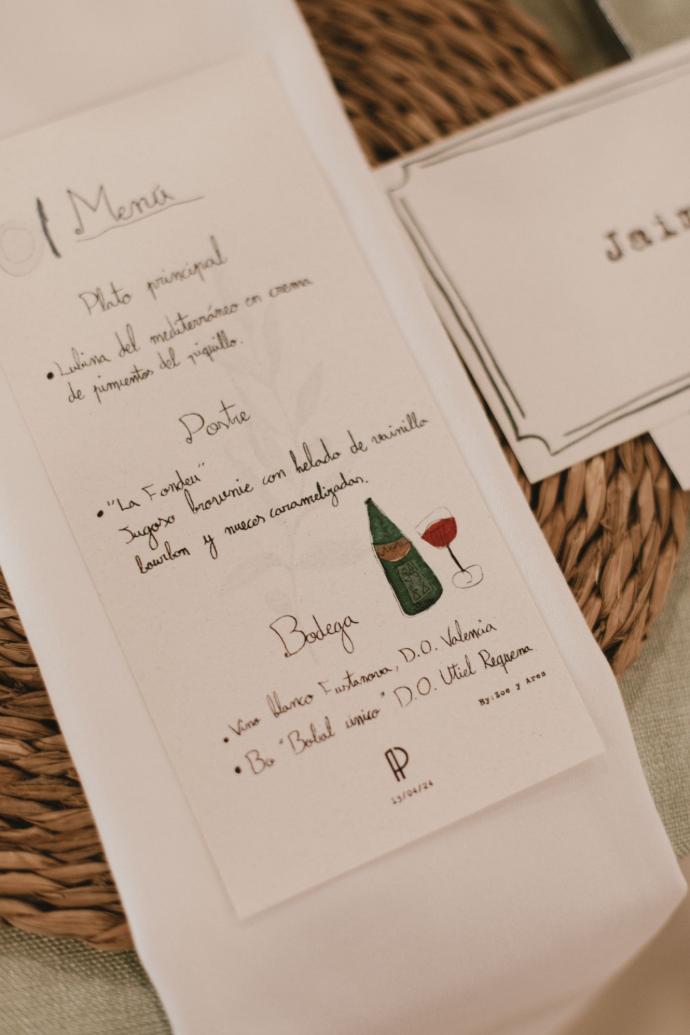 Menú
Plato principal
• Lubina del mediterráneo en crema
de pimientos del piquillo.
Postre
• "La Fondeu"
Jugoso brownie con helado de vainilla
bourbon y nueces caramelizadas.
Bodega
• Vino blanco Fustanova, D.O. Valencia
• Bo "Bobal único" D.O. Utiel Requena.
By: Zoe y Aroa
AP
13/04/24
Jaim